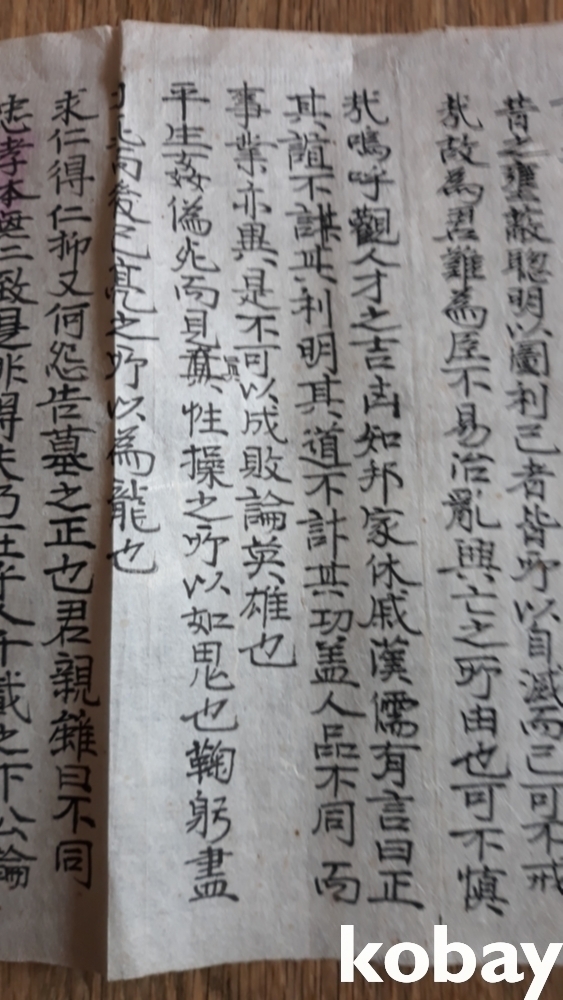 昔之壅蔽聰明以圖利己者皆所以自滅而已可不戒
哉故為君難為臣不易治亂興亡之所由也可不慎
哉嗚呼觀人才之吉凶知邦家休戚漢儒有言曰正
其誼不謀其利明其道不計其功盖人品不同而
事業亦異是不可以成敗論英雄也
平生姦偽死而見真性操之所以如鬼也鞠躬盡
而後已亮之所以為龍也
求仁得仁抑又何怨告墓之正也君親雖曰不同
忠孝本無二致是非得失乃在乎人千載之下公論
kobay